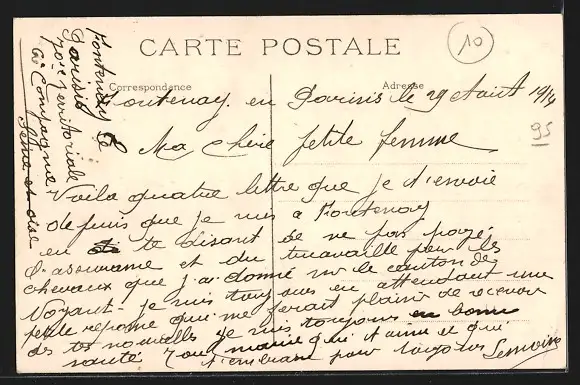 CARTE POSTALE
10
Correspondance
Adresse
Fontenay le
Parisis
70e territoriale
Compagnie
Seine et oise
95
Fontenay en Parisis le 29 Aout 1914
Ma Chère petite femme
Voila quatre lettre que je t'envoie
depuis que je suis a Fontenay
en te disant de ne pas payé
d'assurance et du travaille pour les
chevaux que j'ai donné sur le canton de
Voyant je suis tous en attendant une
petite réponse qui me ferait plaisir de recevoir
des tes nouvelles je suis toujours en bonne
santé Ton marie qui t'aime et qui
t'embrasse pour toujours